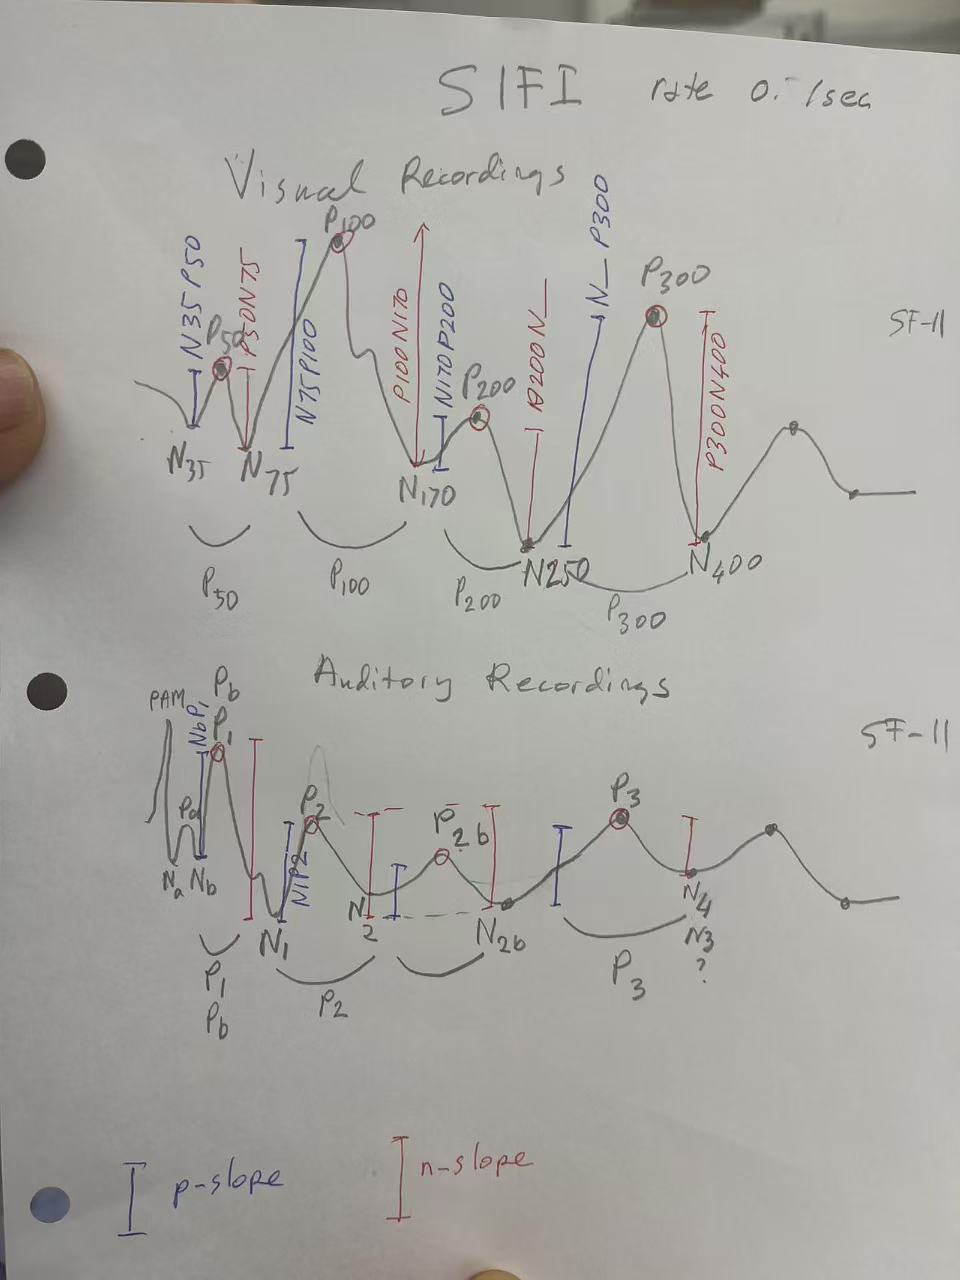 SIFI rate 0. /sec
Visual Recordings
P100
N35P50
P50
P50N75
N75P100
P100N170
N170P200
P200
P200N_
N_P300
P300
P300N400
SF-11
N35
N75
N170
N250
N400
P50
P100
P200
P300
Auditory Recordings
SF-11
PAM
NbP1
Pb
P1
Pa
P2
N1P2
P2b
P3
Na
Nb
N1
N2
N2b
N4
N3
?
P1
Pb
P2
P3
p-slope
n-slope